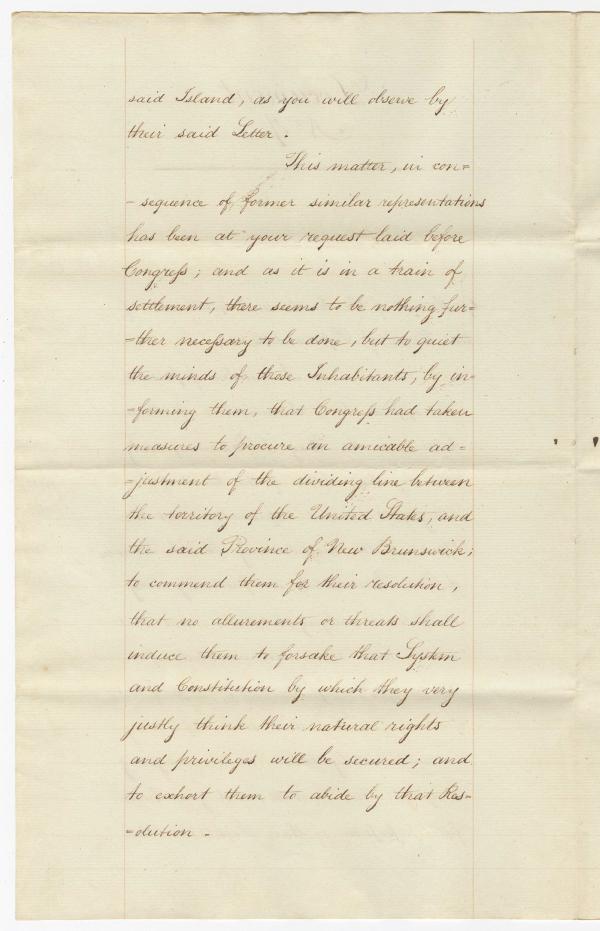 said Island, as you will observe by
their said Letter.
This matter, in con=
- sequence of former similar representations
has been at your request laid before
Congreſs; and as it is in a train of
settlement, there seems to be nothing fur=
=ther neceſsary to be done, but to quiet
the minds of those Inhabitants, by in=
=forming them, that Congreſs had taken
measures to procure an amicable ad=
=justment of the dividing line between
the territory of the United States, and
the said Province of New Brunswick;
to commend them for their resolution,
that no allurements or threats shall
induce them to forsake that System
and Constitution by which they very
justly think their natural rights
and privileges will be secured; and
to exhort them to abide by that Res=
=olution -